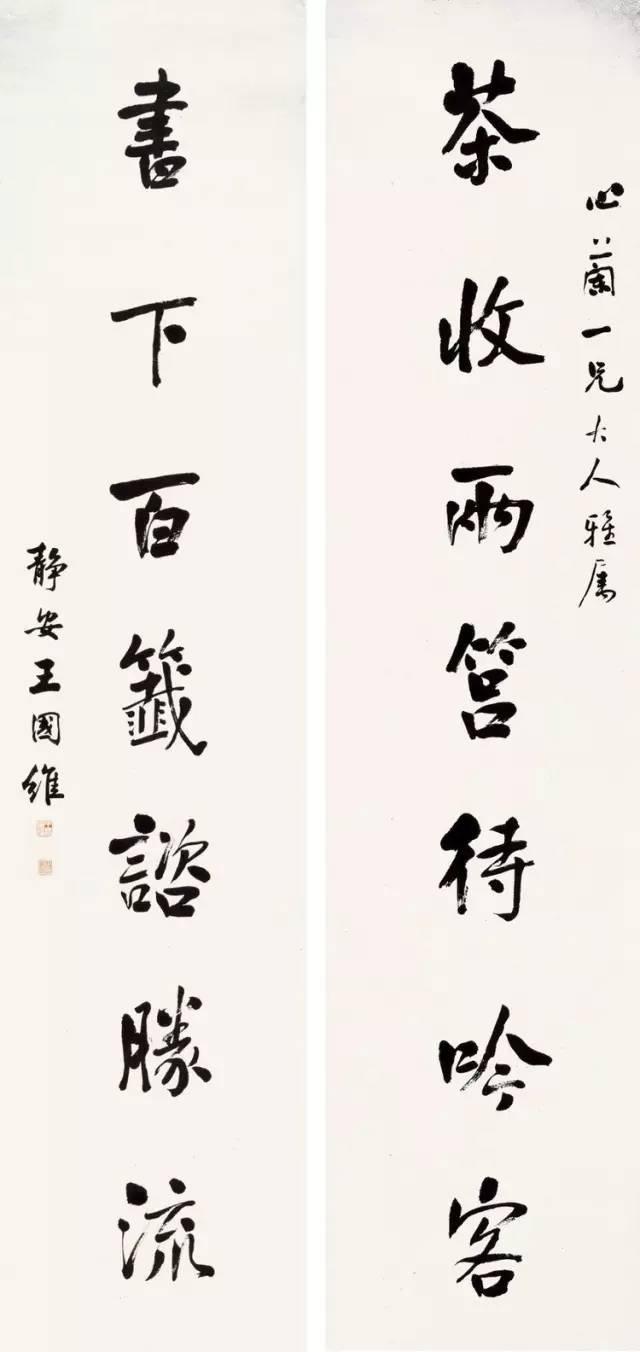 心蘭一兄大人雅属
茶收兩筥待吟客
書下百籤諮勝流
静安王國維